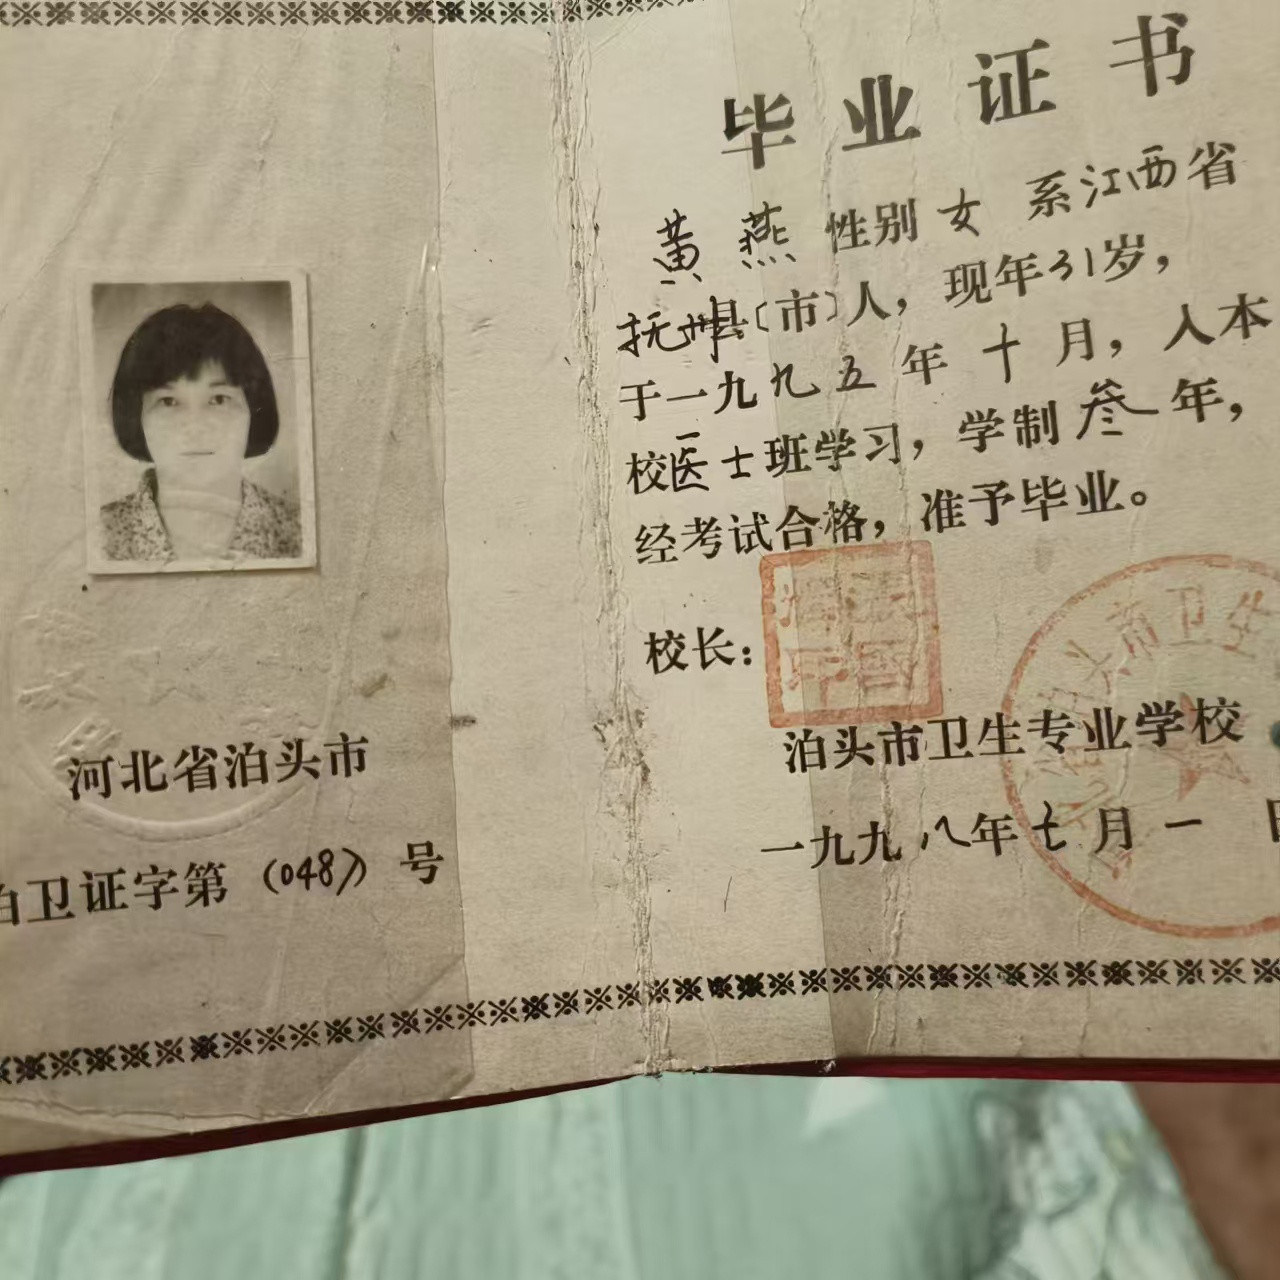 毕业证书
黄燕 性别 女 系江西省
抚州县〔市〕人，现年31岁，
于一九九五年十月，入本
校医士班学习，学制叁年，
经考试合格，准予毕业。
校长：
泊头市卫生专业学校
一九九八年七月一日
河北省泊头市
泊卫证字第（048）号